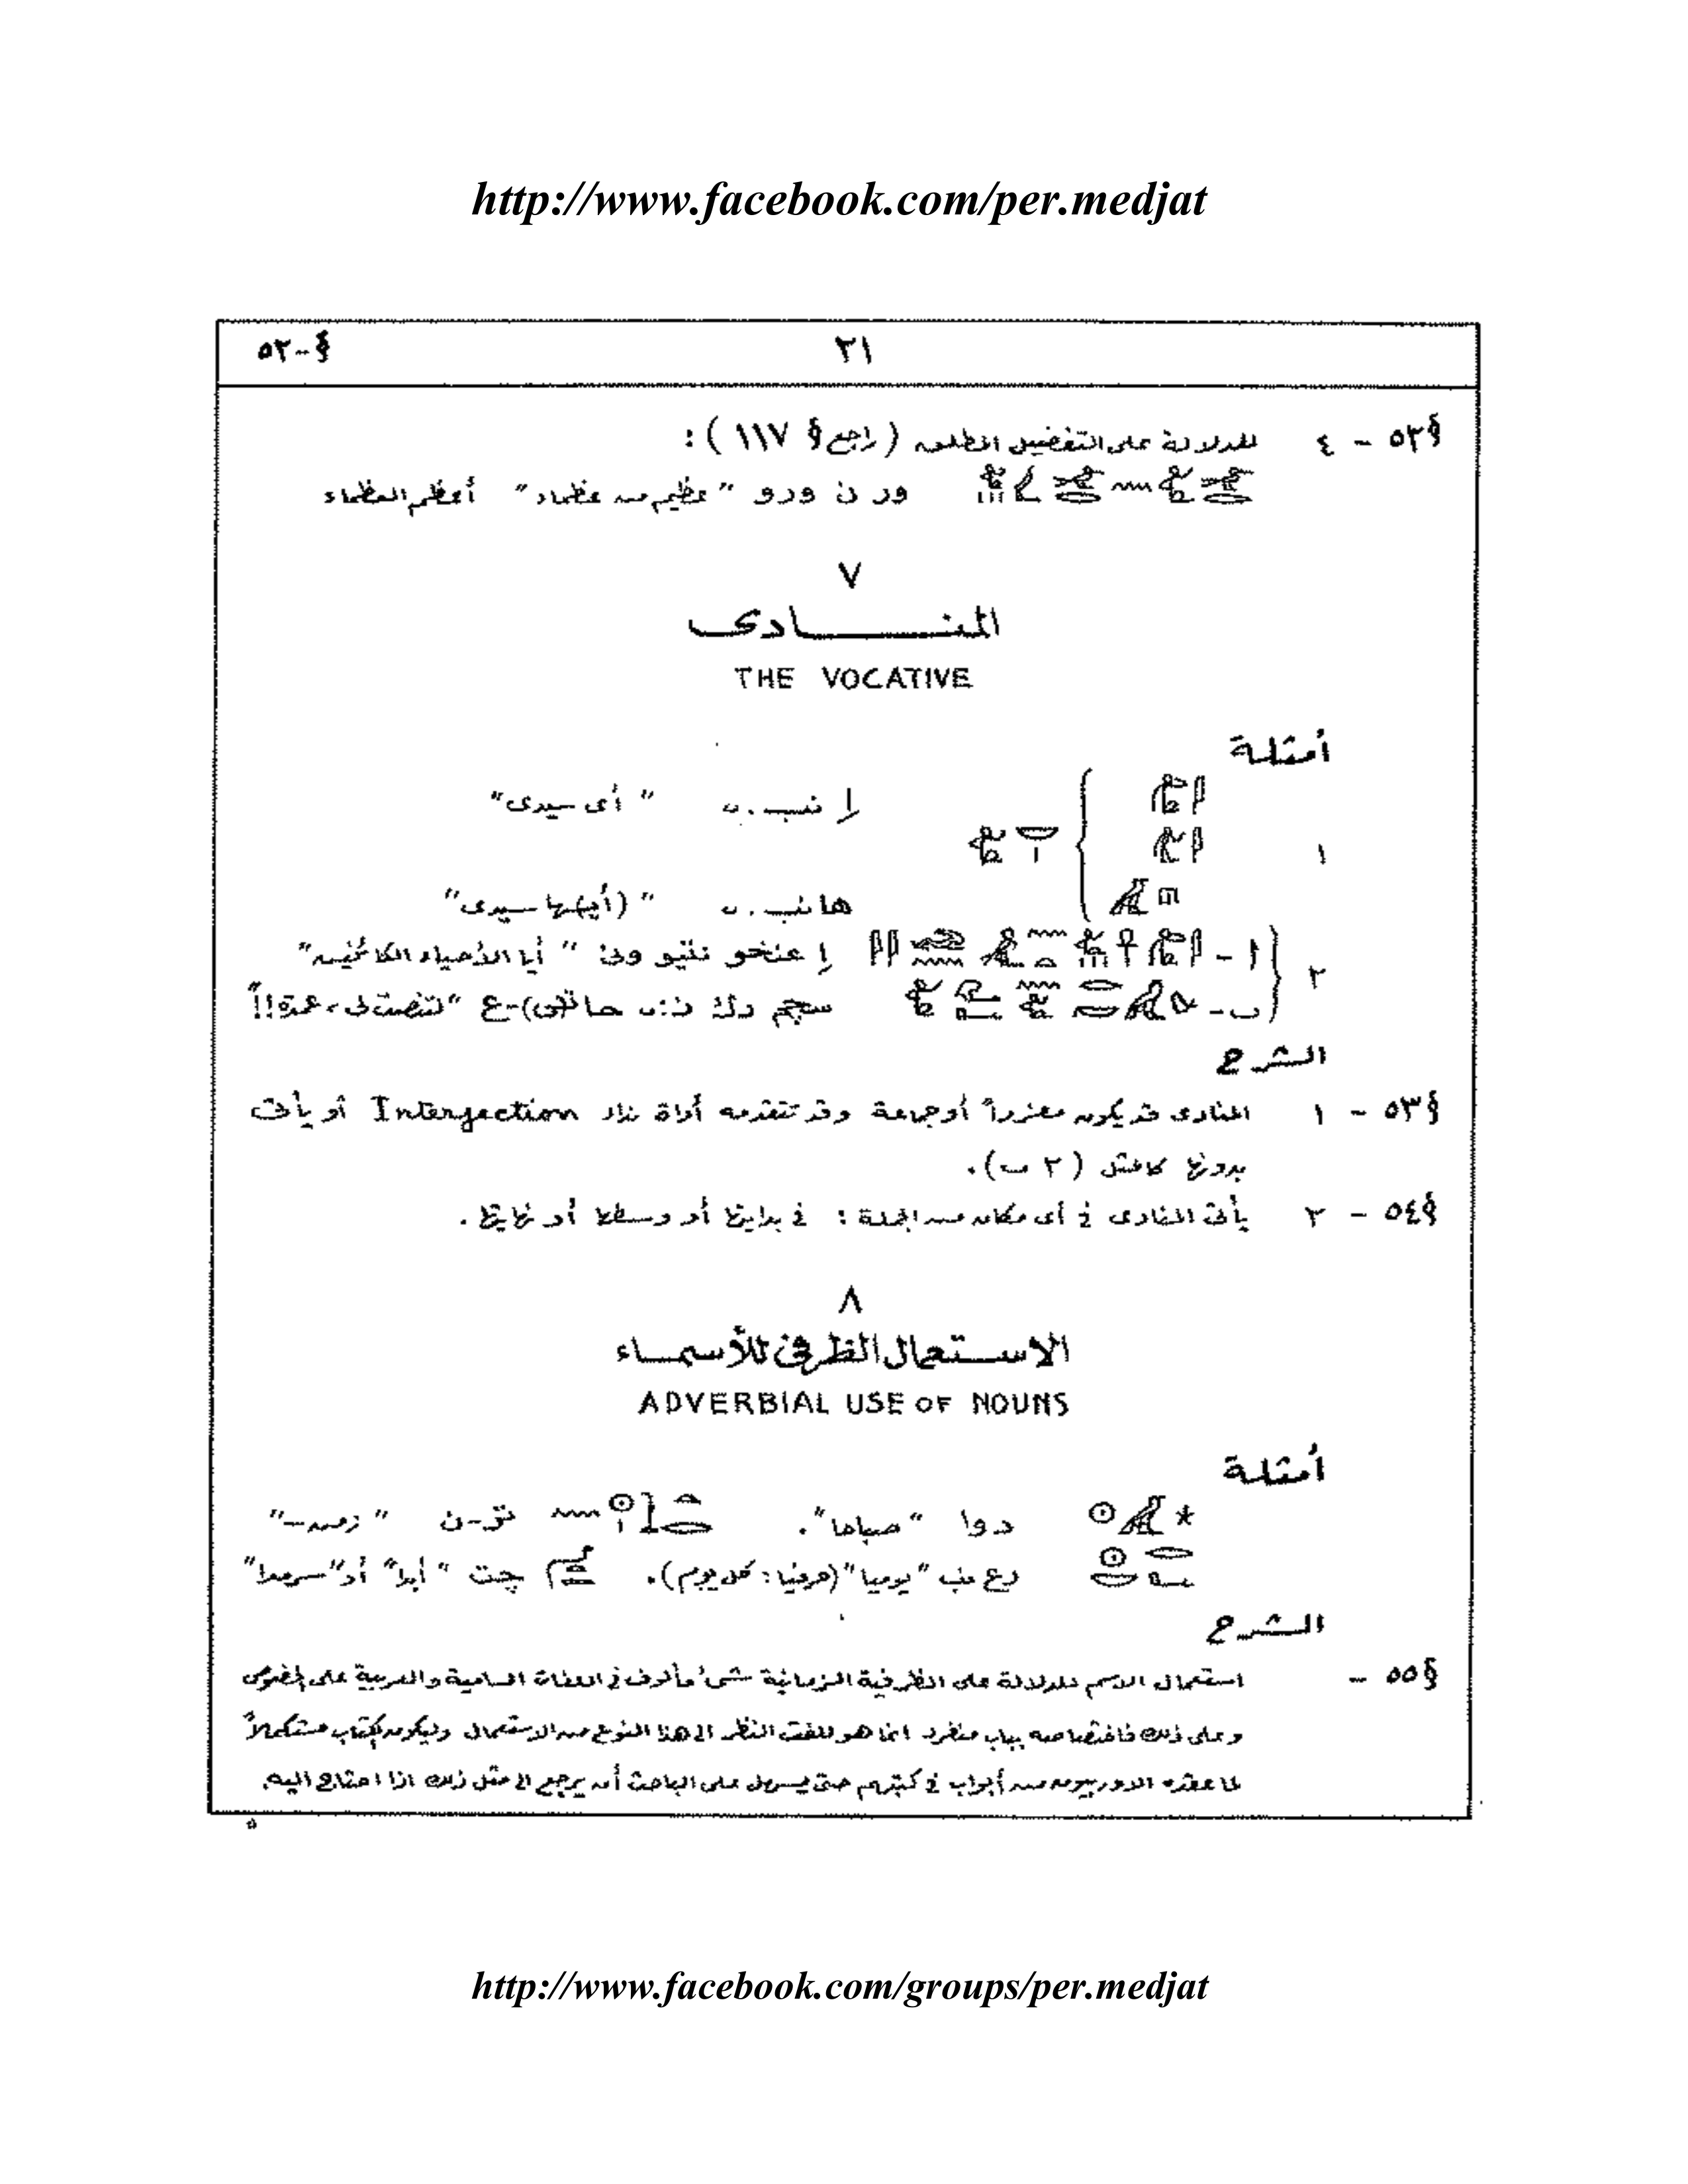 http://www.facebook.com/per.medjat
§-٥٢ ٣١
§٥٢ - ٤ للدلالة على التفضيل المطلق (راجع § ١١٧) :
ور ن ورو "عظيم من عظماء" أعظم العظماء
٧
المنادى
THE VOCATIVE
أمثلة
إ نب.ى "أى سيدى"
١
ها نب.ى "(أي)ها سيدى"
٢ ا - إ عنخو نتيو ونى "أيا الأحياء الكائنين"
ب - سجم رك ن.ى حاتى-ع "لتنصت لى، عمدة!!"
الشرح
§٥٣ - ١ المنادى قد يكون مفرداً أو جماعة وقد تتقدمه أداة نداء Interjection أو يأتى
بدونها كالمثل (٢ ب).
§٥٤ - ٢ يأتى المنادى فى أى مكان من الجملة : فى بدايتها أو وسطها أو نهايتها.
٨
الاستعمال الظرفى للأسماء
ADVERBIAL USE OF NOUNS
أمثلة
دوا "صباحا". تر-ن "زمن-"
رع نب "يوميا" (حرفيا: كل يوم). چت "أبدا" أو "سرمدا"
الشرح
§٥٥ - استعمال الاسم للدلالة على الظرفية الزمانية شئ مألوف فى اللغات السامية والعربية على الخصوص
وعلى ذلك فاختصاصه بباب منفرد انما هو للفت النظر الى هذا النوع من الاستعمال وليكون الكتاب مستكملاً
لما عقده الاوربيون من أبواب فى كتبهم حتى يسهل على الباحث أن يرجع الى مثل ذلك اذا احتاج اليه.
٥
http://www.facebook.com/groups/per.medjat